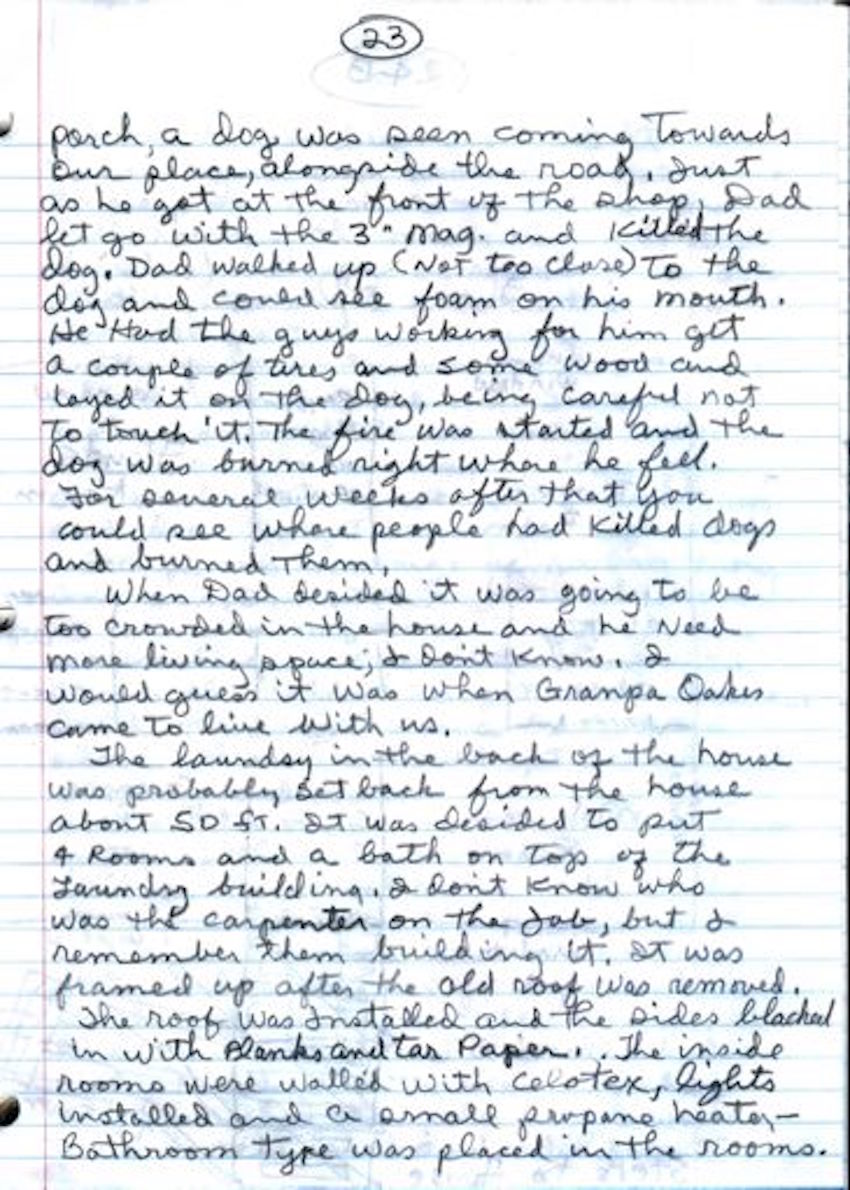 23
porch, a dog was seen coming Towards
our place, alongside the road. Just
as he got at the front of the shop, Dad
let go with the 3" Mag. and Killed the
dog. Dad walked up (Not too close) To the
dog and could see foam on his mouth.
He Had the guys working for him get
a couple of tires and some wood and
layed it on the dog, being careful not
To touch it. The fire was started and the
dog was burned right where he fell.
For several weeks after that you
could see where people had killed dogs
and burned them.
When Dad desided it was going to be
too crowded in the house and he Need
more living space, I don't know. I
would guess it was when Granpa Oakes
came to live with us.
The laundry in the back of the house
was probably set back from the house
about 50 ft. It was desided to put
4 Rooms and a bath on top of the
Laundry building. I don't Know who
was the carpenter on the Job, but I
remember them building it. It was
framed up after the old roof was removed.
The roof was Installed and the sides blacked
in with Blanks and tar Paper.. The inside
rooms were walled with celotex, lights
installed and a small propane heater-
Bathroom Type was placed in the rooms.